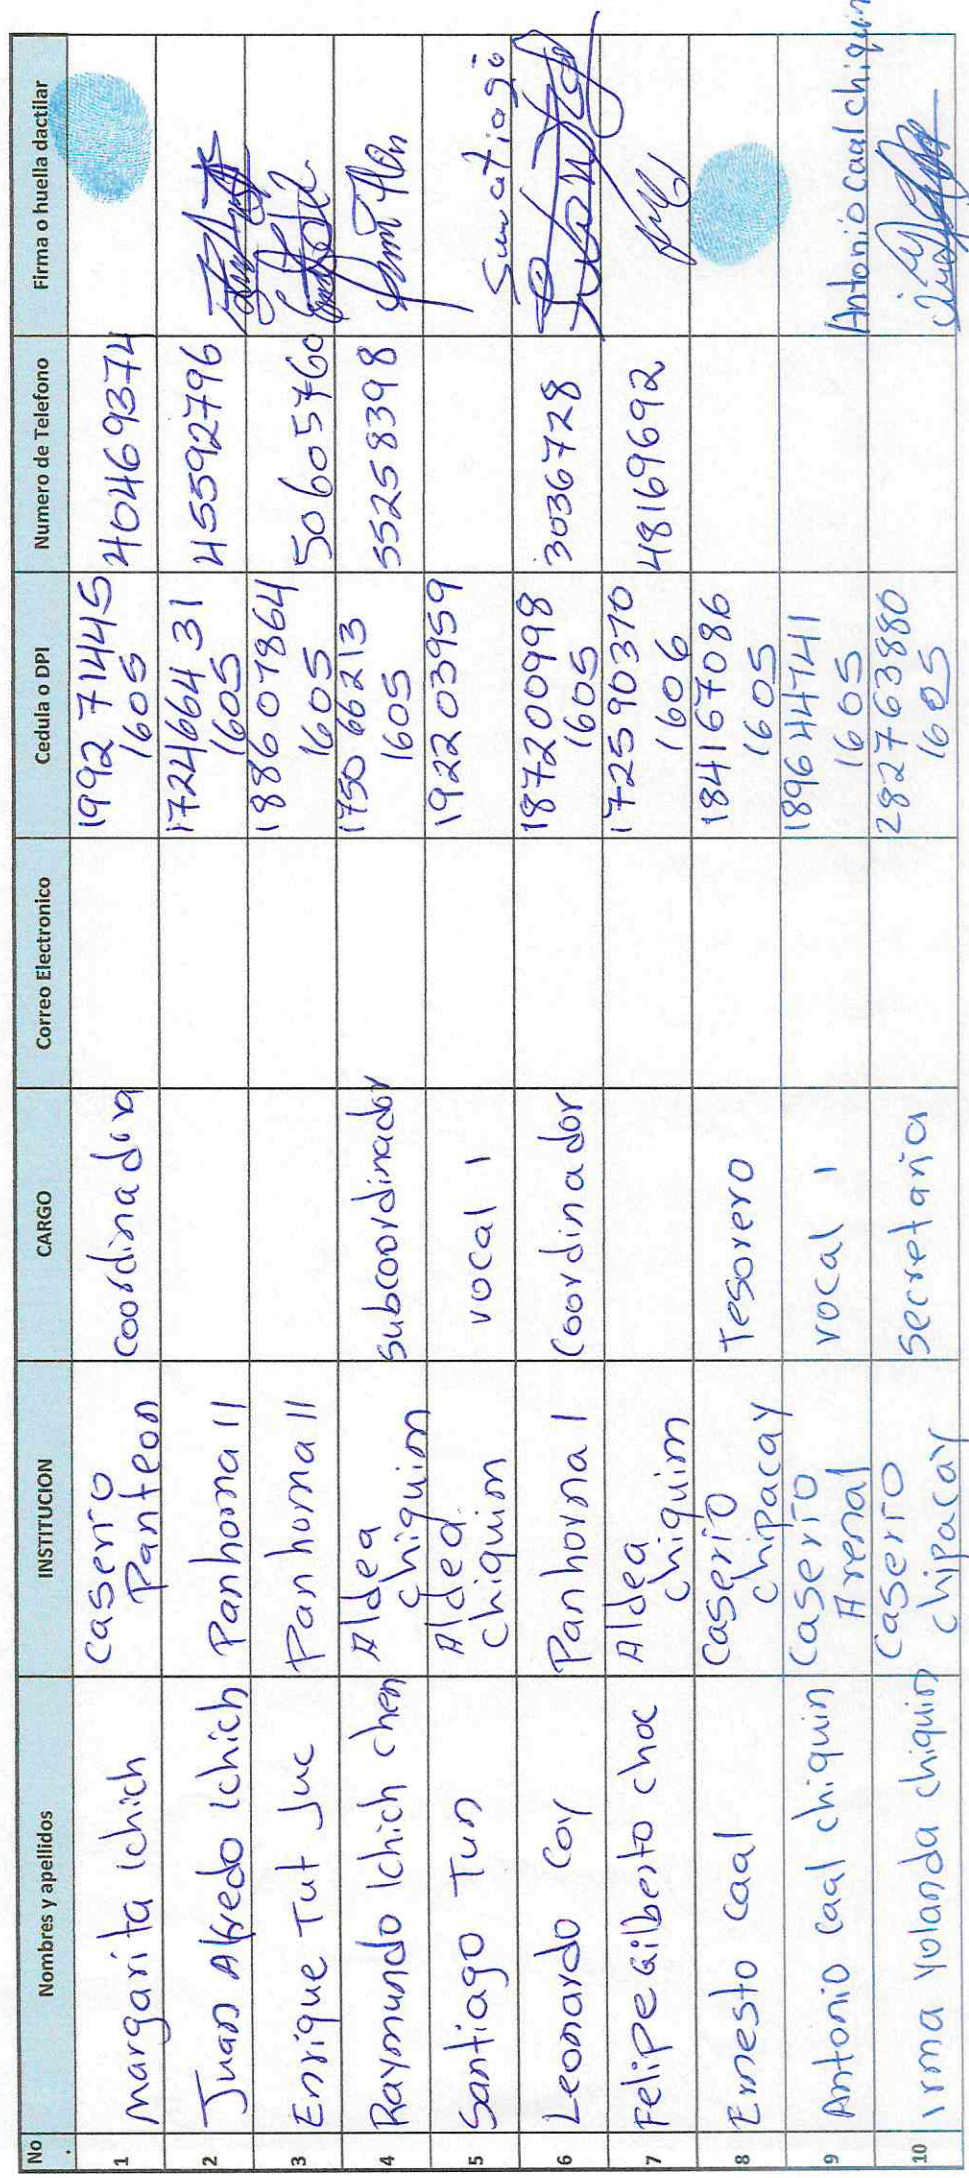 No. Nombres y apellidos INSTITUCION CARGO Correo Electronico Cedula o DPI Numero de Telefono Firma o huella dactilar
1 Margarita Ichich Caserio Panteon coordinadora 1992 71445 1605 40469374
2 Juan Alfredo Ichich Panhorna II 1724664 31 1605 45592796
3 Enrique Tut Juc Panhorna II 1860 07864 1605 50605760
4 Raymundo Ichich chen Aldea chiquim subcoordinador 1750 66213 1605 55258398
5 Santiago Tun Aldea chiquim vocal 1 1922 03959
6 Leonardo Coy Panhorna I Coordinador 187200998 1605 3036728
7 Felipe Gilberto choc Aldea chiquim 172590370 1606 48169692
8 Ernesto Caal Caserio chipacay Tesorero 184167086 1605
9 Antonio Caal chiquin Caserio Arenal vocal 1 1896 44741 1605 Antonio Caal chiquin
10 Irma Yolanda chiquin Caserio chipacay secretaria 282763880 1605